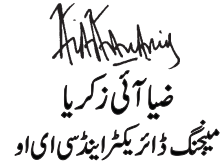 ضیا آئی زکریا
مینجنگ ڈائریکٹر اینڈ سی ای او